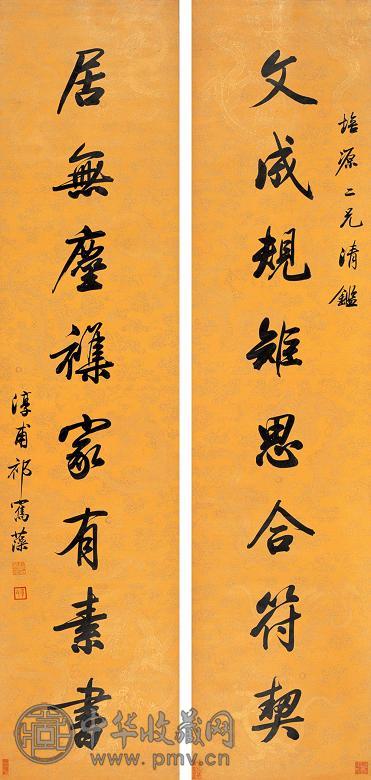 培源二兄清鑑
文成規思合符契
居無塵襍家有素書
淳甫祁寯藻
中华收藏网
www.pmv.cn